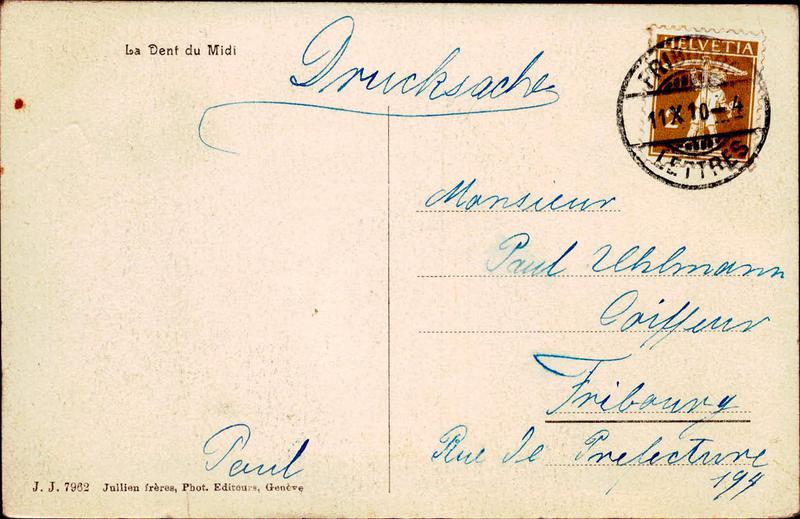 La Dent du Midi
Drucksache
HELVETIA
2
11 X 10 - 4
LETTRES
Monsieur
Paul Uhlmann
Coiffeur
Fribourg
Rue de Prefecture
194
Paul
J. J. 7962 Jullien frères, Phot. Editeurs, Genève